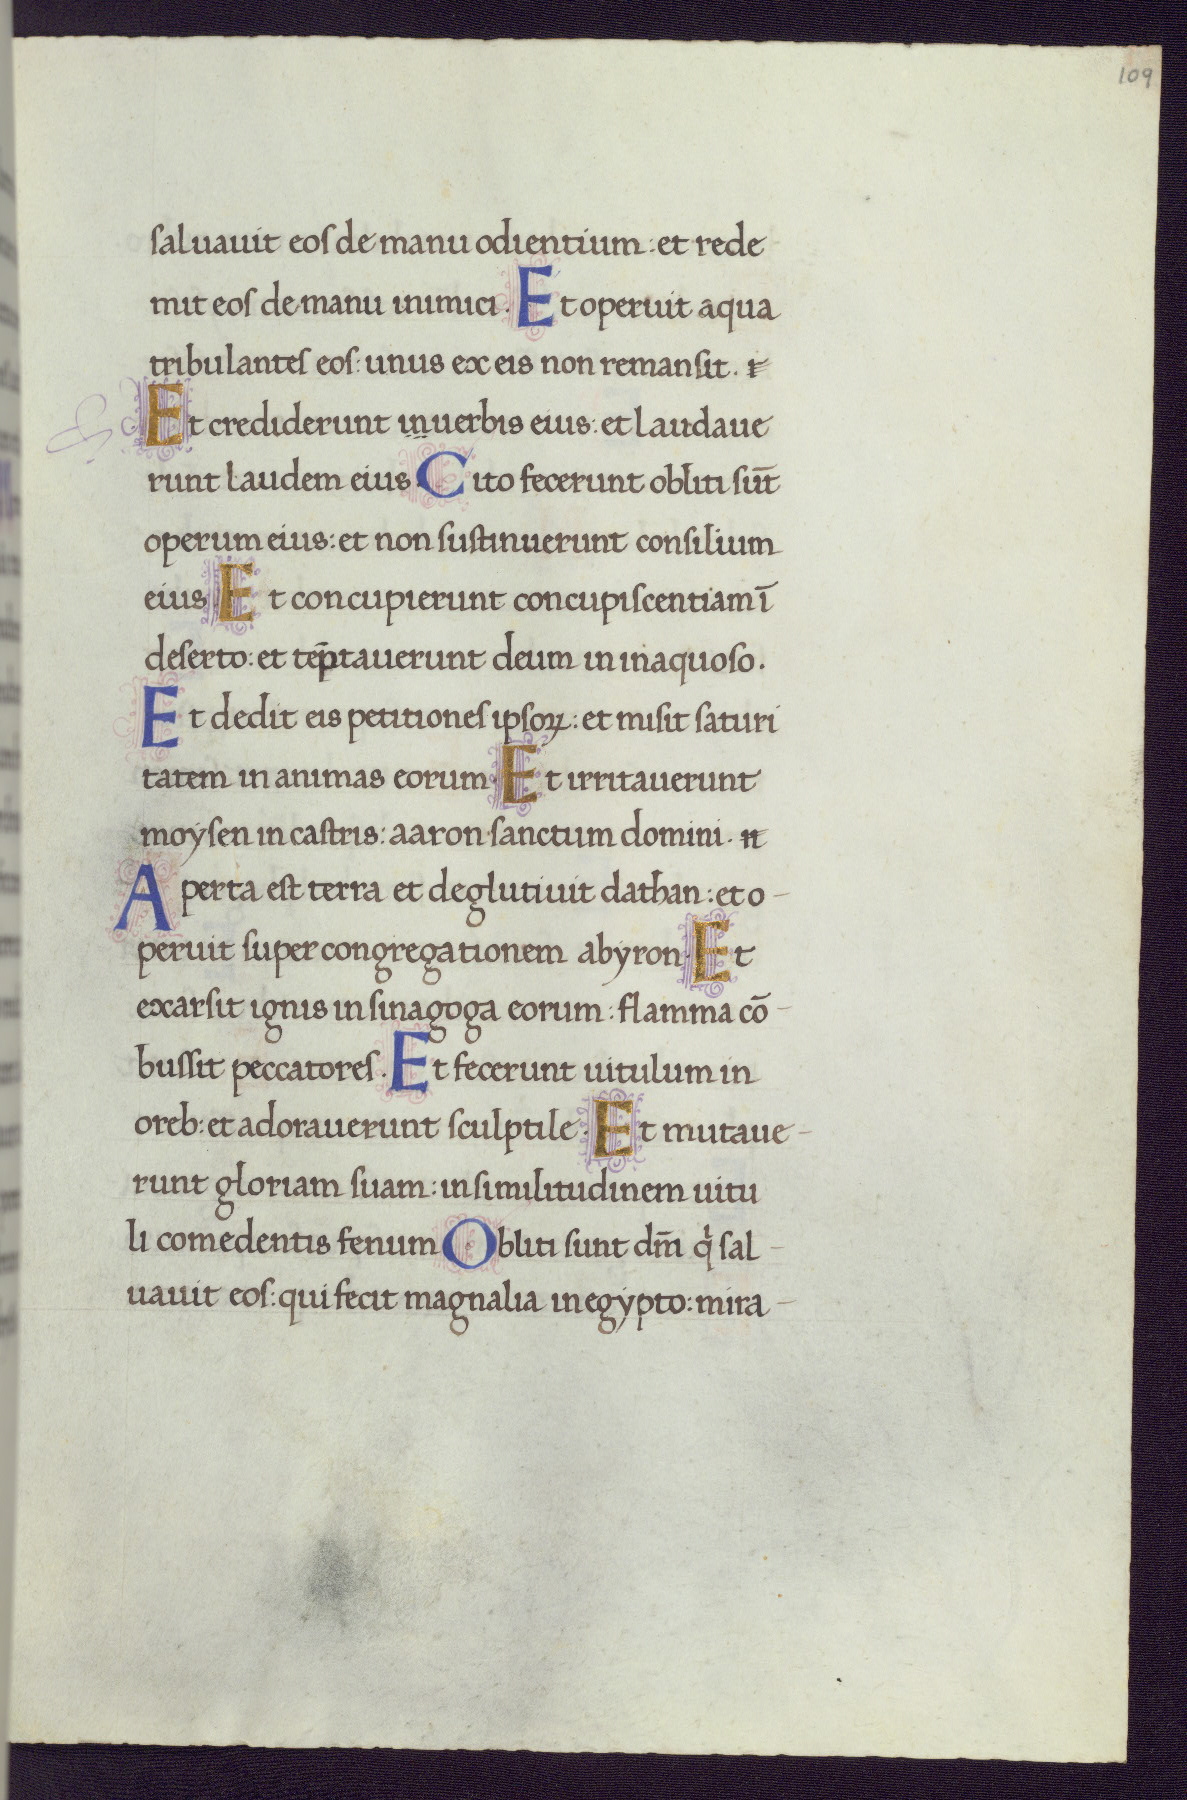 109
saluauit eos de manu odientium: et rede
mit eos de manu inimici. Et operuit aqua
tribulantes eos: unus ex eis non remansit.
Et crediderunt in uerbis eius: et laudaue
runt laudem eius Cito fecerunt obliti sūt
operum eius: et non sustinuerunt consilium
eius Et concupierunt concupiscentiam ī
deserto: et tēptauerunt deum in inaquoso.
Et dedit eis petitiones ipsoꝝ: et misit saturi
tatem in animas eorum. Et irritauerunt
moẏsen in castris: aaron sanctum domini.
Aperta est terra et deglutiuit dathan: et o-
peruit super congregationem abyron. Et
exarsit ignis in sinagoga eorum: flamma cō-
bussit peccatores. Et fecerunt uitulum in
oreb: et adorauerunt sculptile. Et mutaue-
runt gloriam suam: in similitudinem uitu
li comedentis fenum Obliti sunt dm̄ qͥ sal-
uauit eos: qui fecit magnalia in egẏpto: mira-